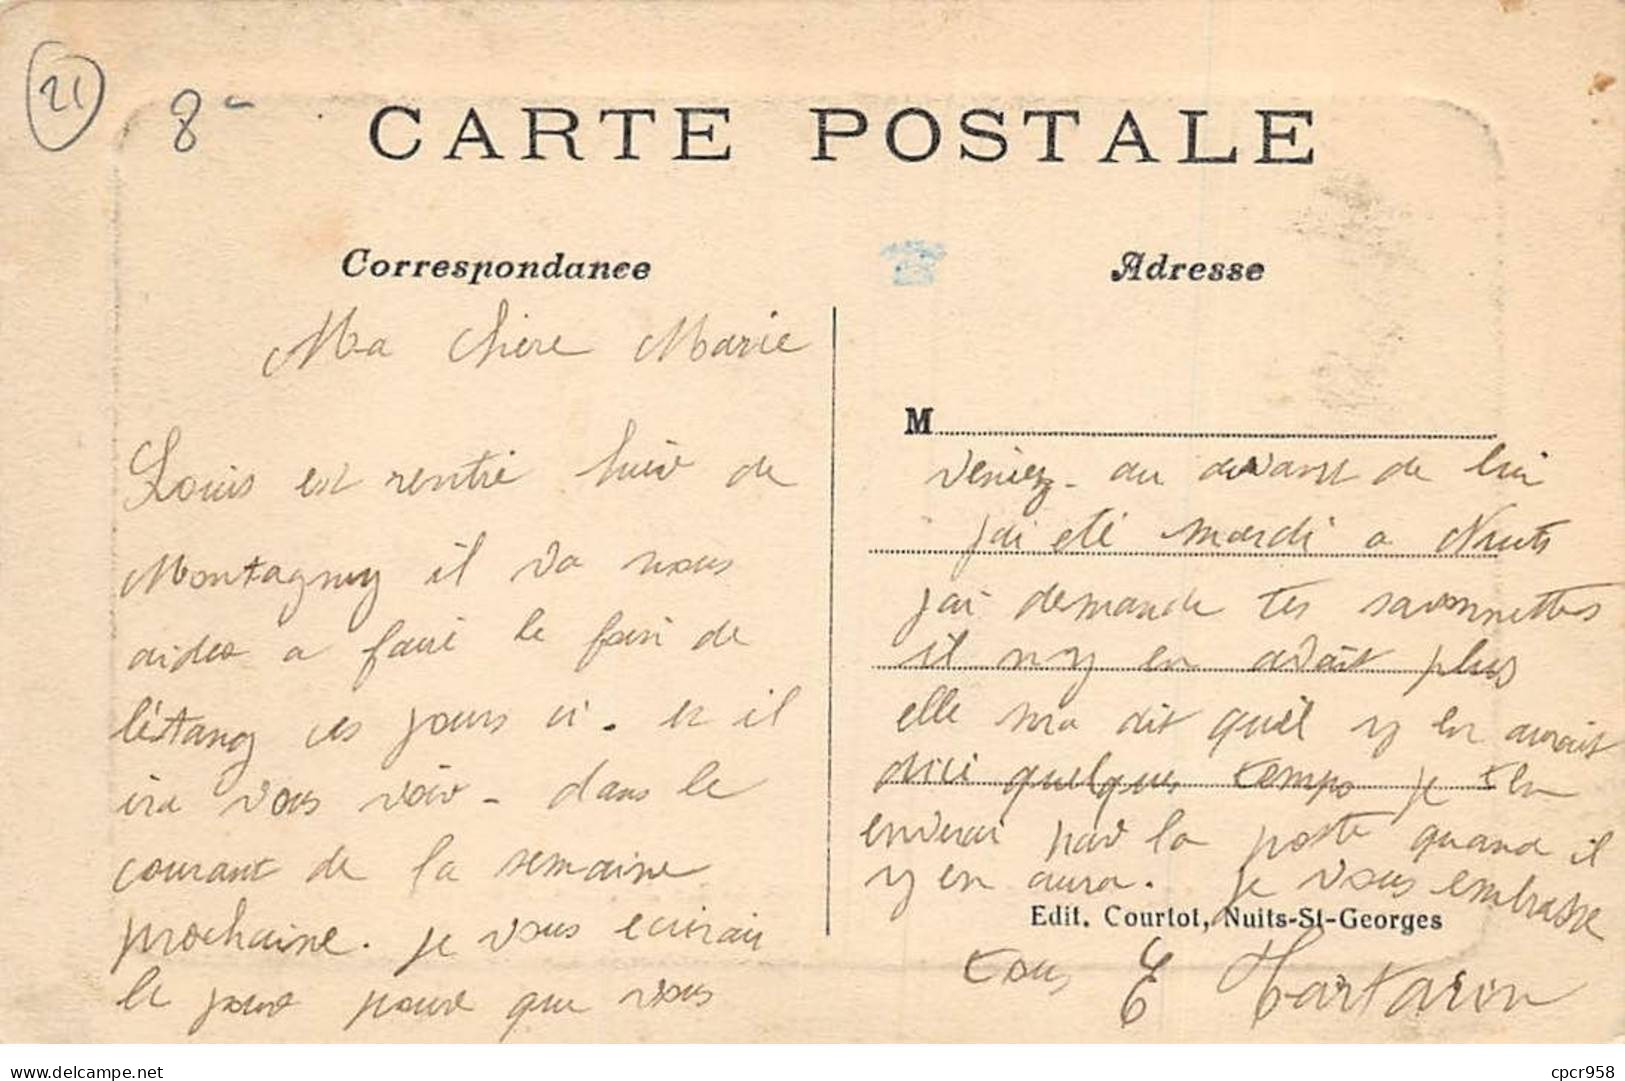 21
8
CARTE POSTALE
Correspondance
Adresse
Ma chère Marie
Louis est rentré hier de
Montagny il va nous
aider a faire le foin de
l'étang ces jours ci. et il
ira vous voir - dans le
courant de la semaine
prochaine. je vous ecrirai
le jour pour que vous
M
veniez - au devant de lui
j'ai eté mardi a Nuits
j'ai demande tes savonnettes
il n'y en avait plus
elle ma dit quel y en aurait
dici quelques temps je ten
enverai par la poste quand il
y en aura. je vous embrasse
Edit. Courtot, Nuits-St-Georges
tous E
delcampe.net
cpcr958